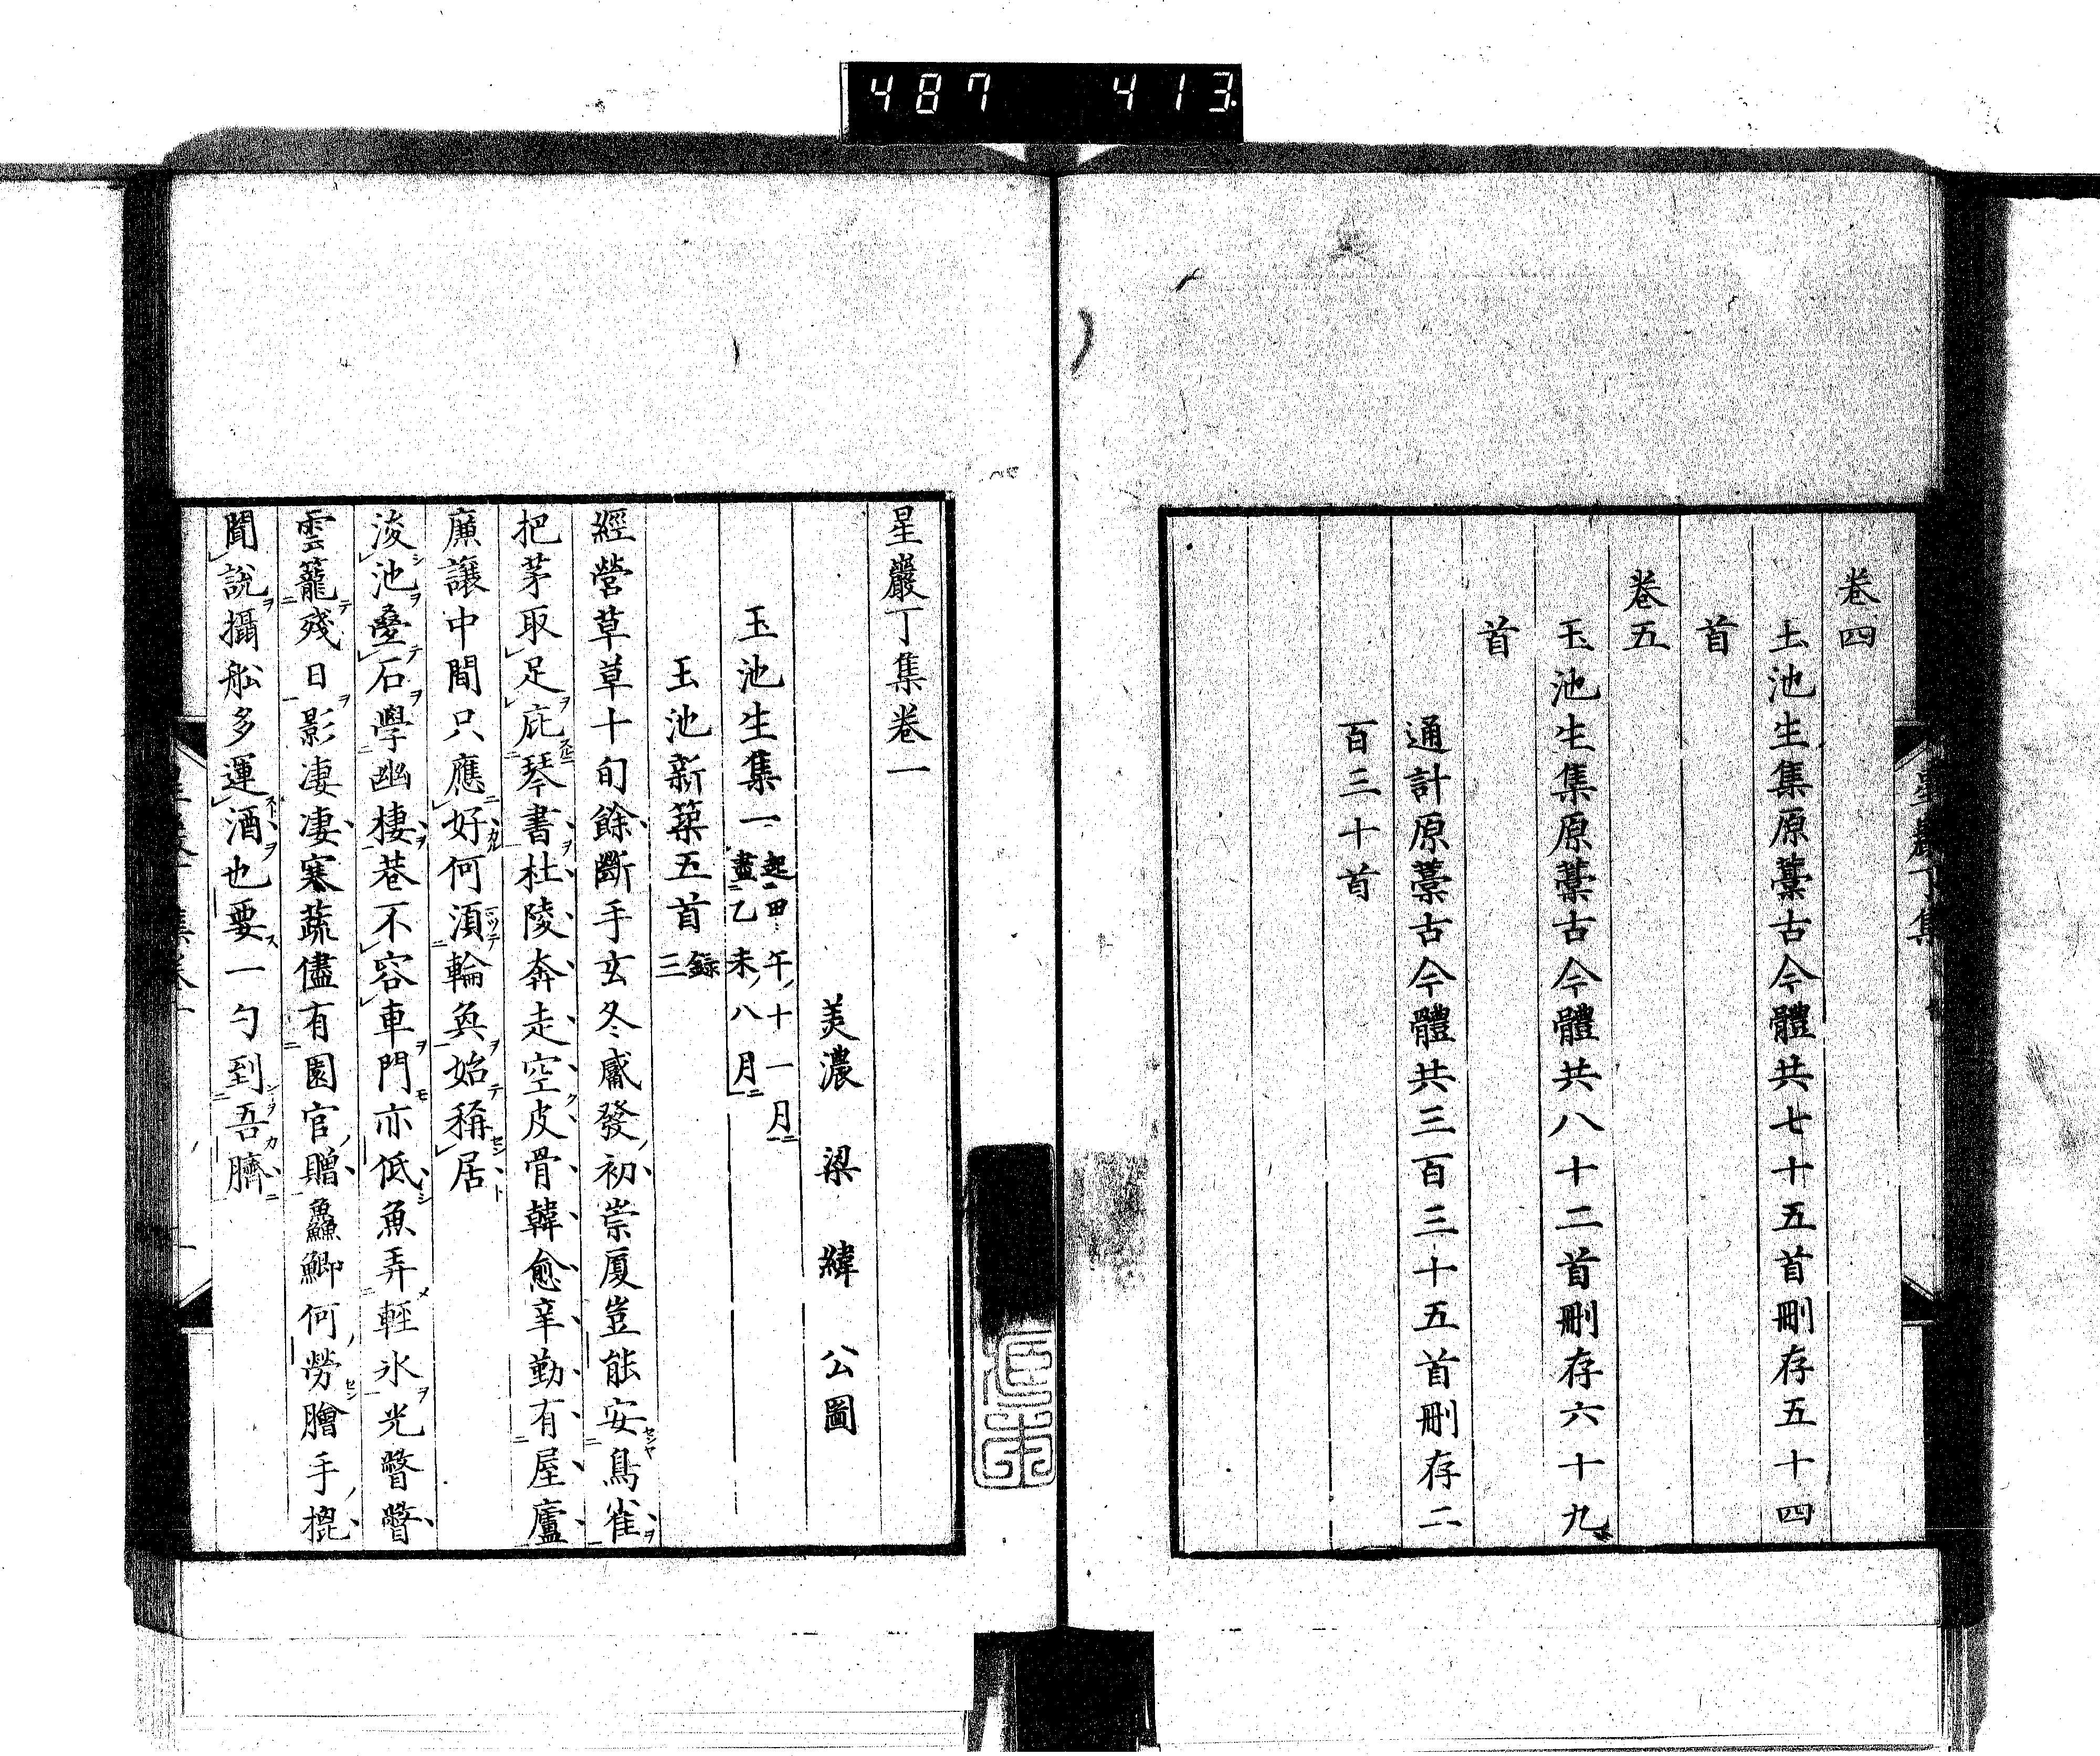 487 413
卷四
玉池生集原藁古今體共七十五首刪存五十四
首
卷五
玉池生集原藁古今體共八十二首刪存六十九
首
通計原藁古今體共三百三十五首刪存二
百三十首
星巖丁集卷一
美濃 梁 緯 公圖
玉池生集一 起甲午十一月 盡乙未八月
玉池新築五首 錄三
經營草草十旬餘斷手玄冬觱發初崇厦豈能安鳥雀
把茅取足庇琴書杜陵奔走空皮骨韓愈辛勤有屋廬
廉讓中間只應好何須輪奐始稱居
浚池疊石學幽棲巷不容車門亦低魚弄輕氷光瞥瞥
雲籠殘日影凄凄寒蔬儘有園官贈鱻鯽何勞膾手㨡
聞說攝船多運酒也要一勺到吾臍